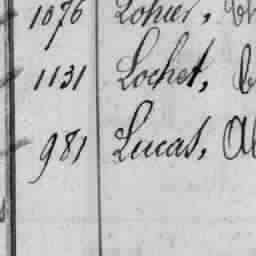 1076 Lohier,
1131 Lochet,
981 Lucas,